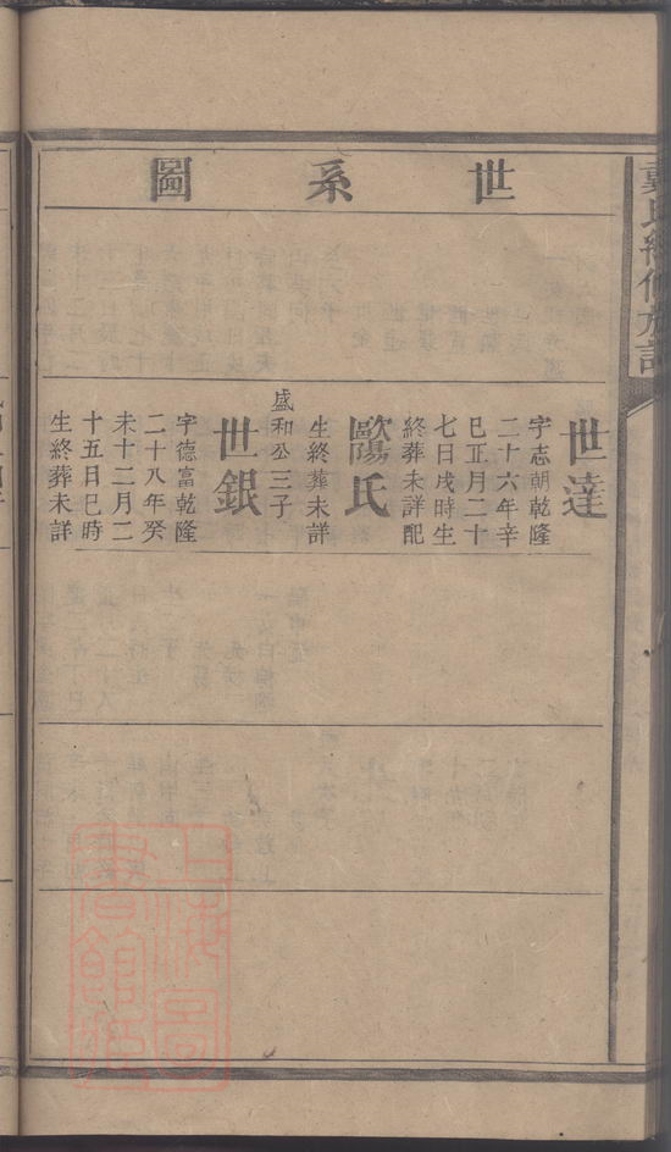 世系圖
世達
字志朝乾隆
二十六年辛
巳正月二十
七日戌時生
終葬未詳配
歐陽氏
生終葬未詳
盛和公三子
世銀
字德富乾隆
二十八年癸
未十二月二
十五日巳時
生終葬未詳